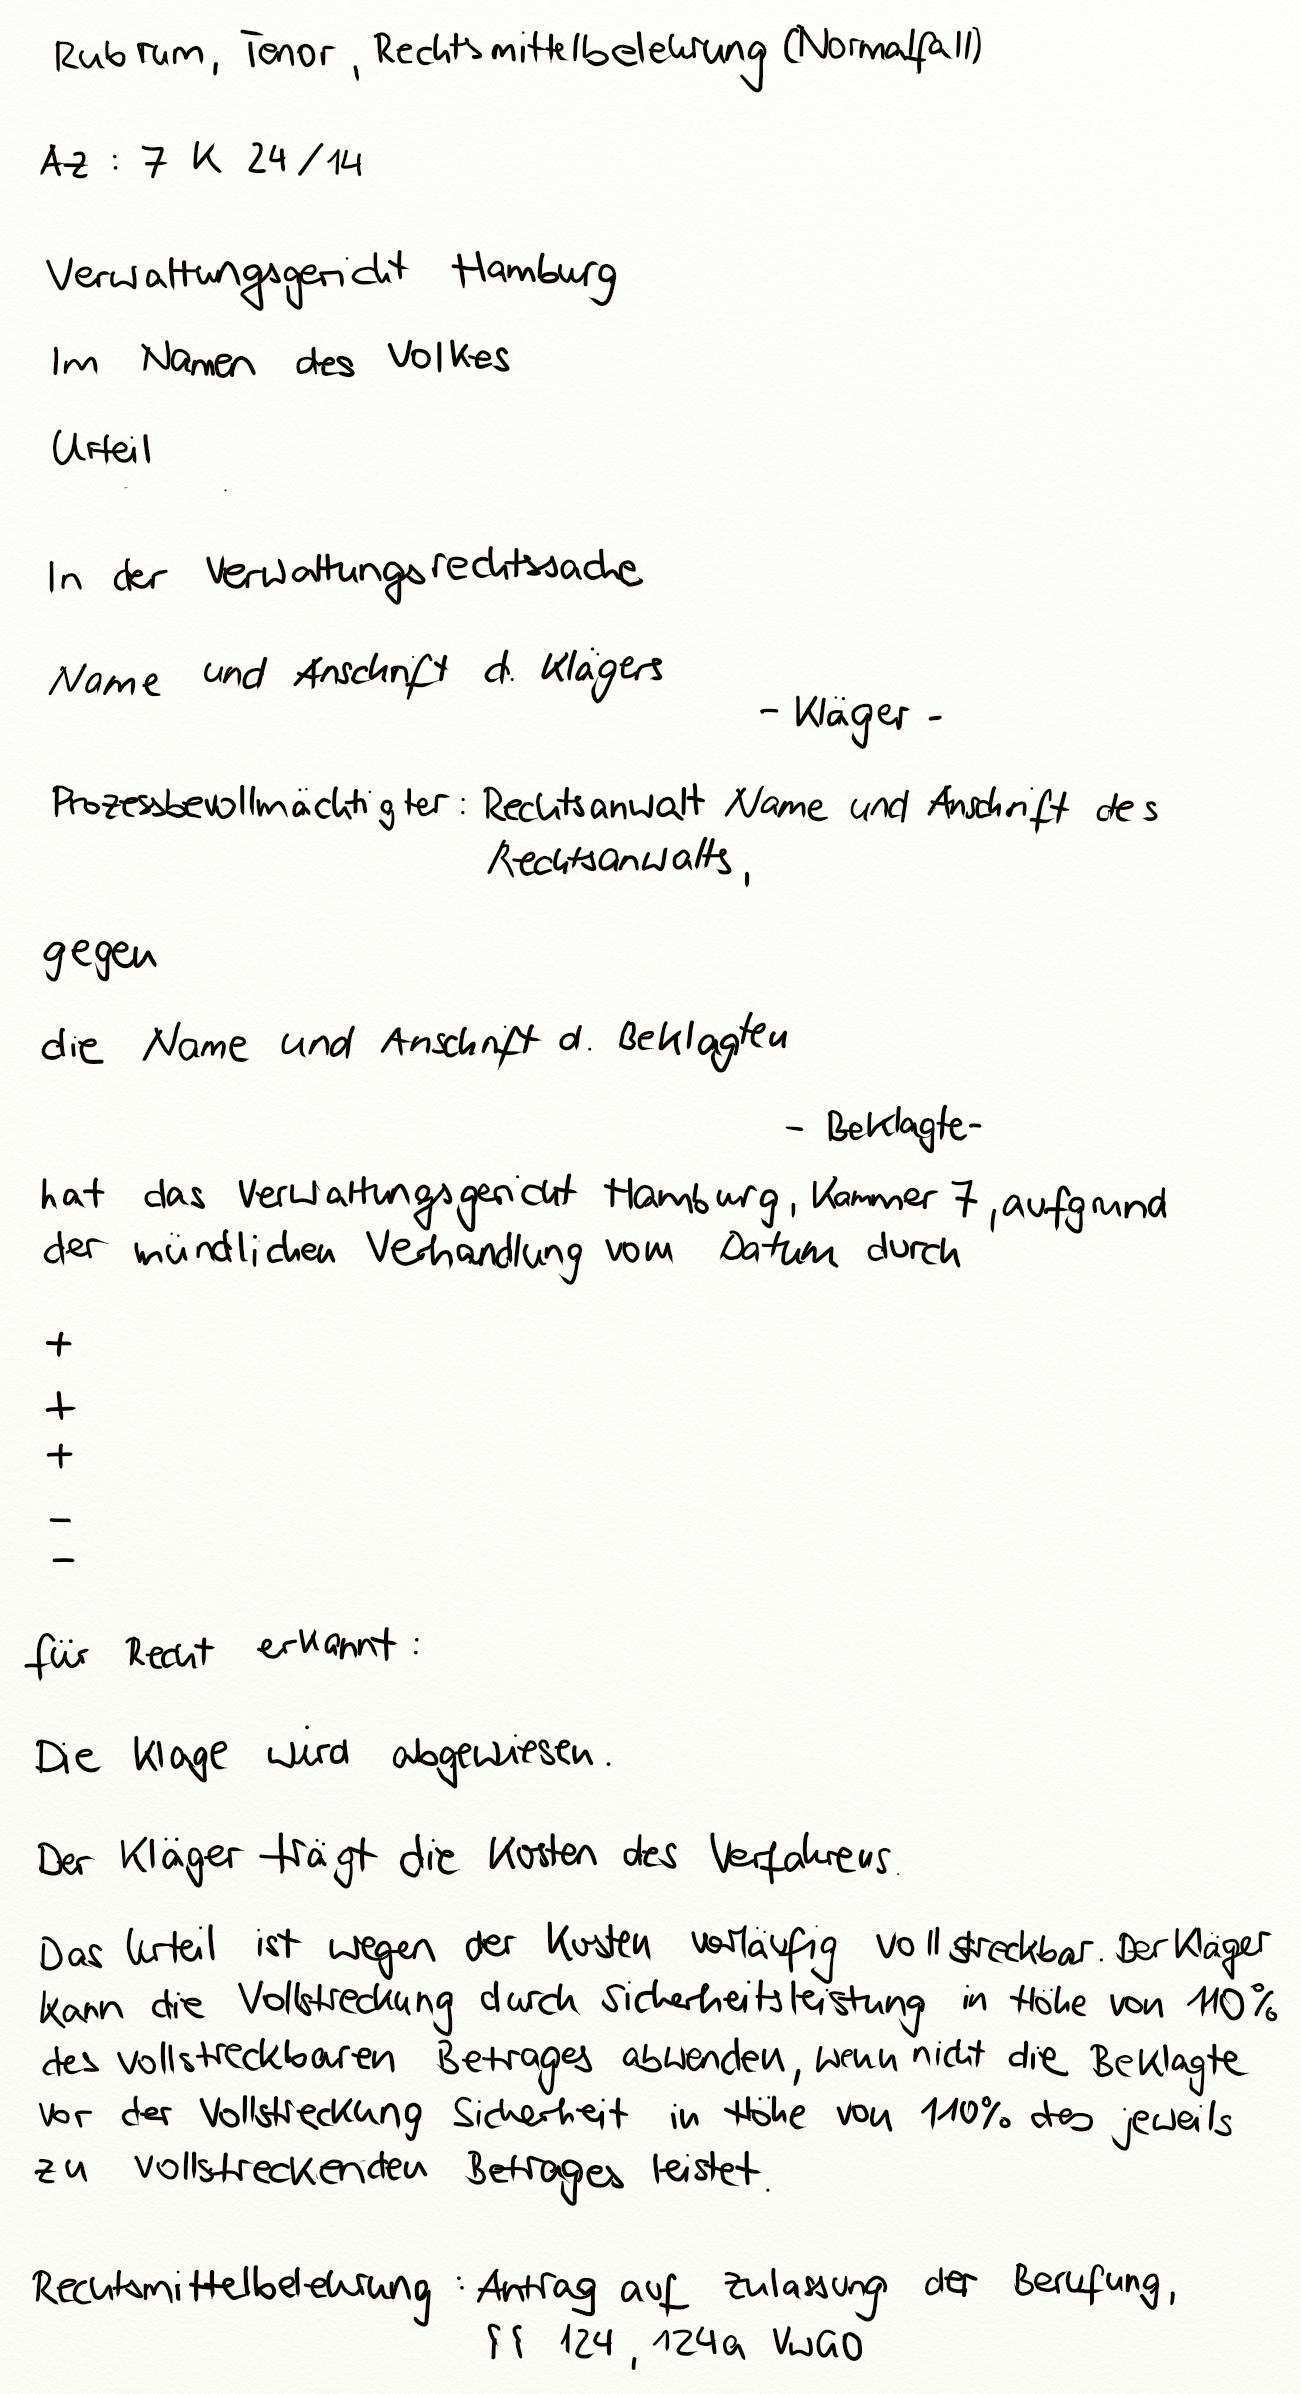 Rubrum, Tenor, Rechtsmittelbelehrung (Normalfall)
Az : 7 K 24/14
Verwaltungsgericht Hamburg
Im Namen des Volkes
Urteil
In der Verwaltungsrechtssache
Name und Anschrift d. Klägers
- Kläger -
Prozessbevollmächtigter: Rechtsanwalt Name und Anschrift des
Rechtsanwalts,
gegen
die Name und Anschrift d. Beklagten
- Beklagte-
hat das Verwaltungsgericht Hamburg, Kammer 7, aufgrund
der mündlichen Verhandlung vom Datum durch
+
+
+
-
-
für Recht erkannt:
Die Klage wird abgewiesen.
Der Kläger trägt die Kosten des Verfahrens.
Das Urteil ist wegen der Kosten vorläufig vollstreckbar. Der Kläger
kann die Vollstreckung durch Sicherheitsleistung in Höhe von 110%
des vollstreckbaren Betrages abwenden, wenn nicht die Beklagte
vor der Vollstreckung Sicherheit in Höhe von 110% des jeweils
zu vollstreckenden Betrages leistet.
Rechtsmittelbelehrung: Antrag auf Zulassung der Berufung,
§§ 124, 124a VwGO